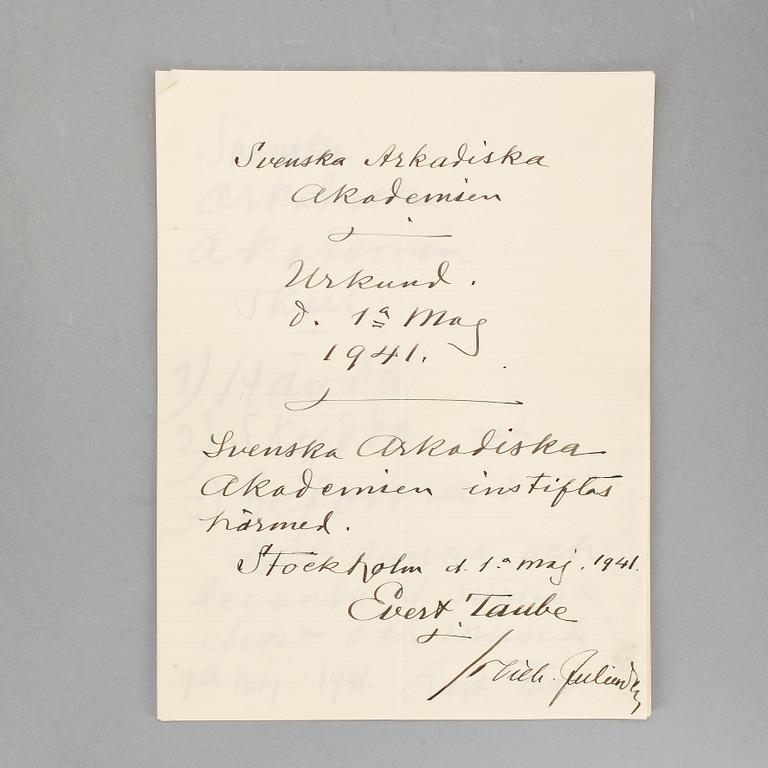 Svenska Arkadiska
Akademien
Urkund.
d. 1a Maj
1941.
Svenska Arkadiska
Akademien instiftas
härmed.
Stockholm d. 1a maj. 1941.
Evert Taube